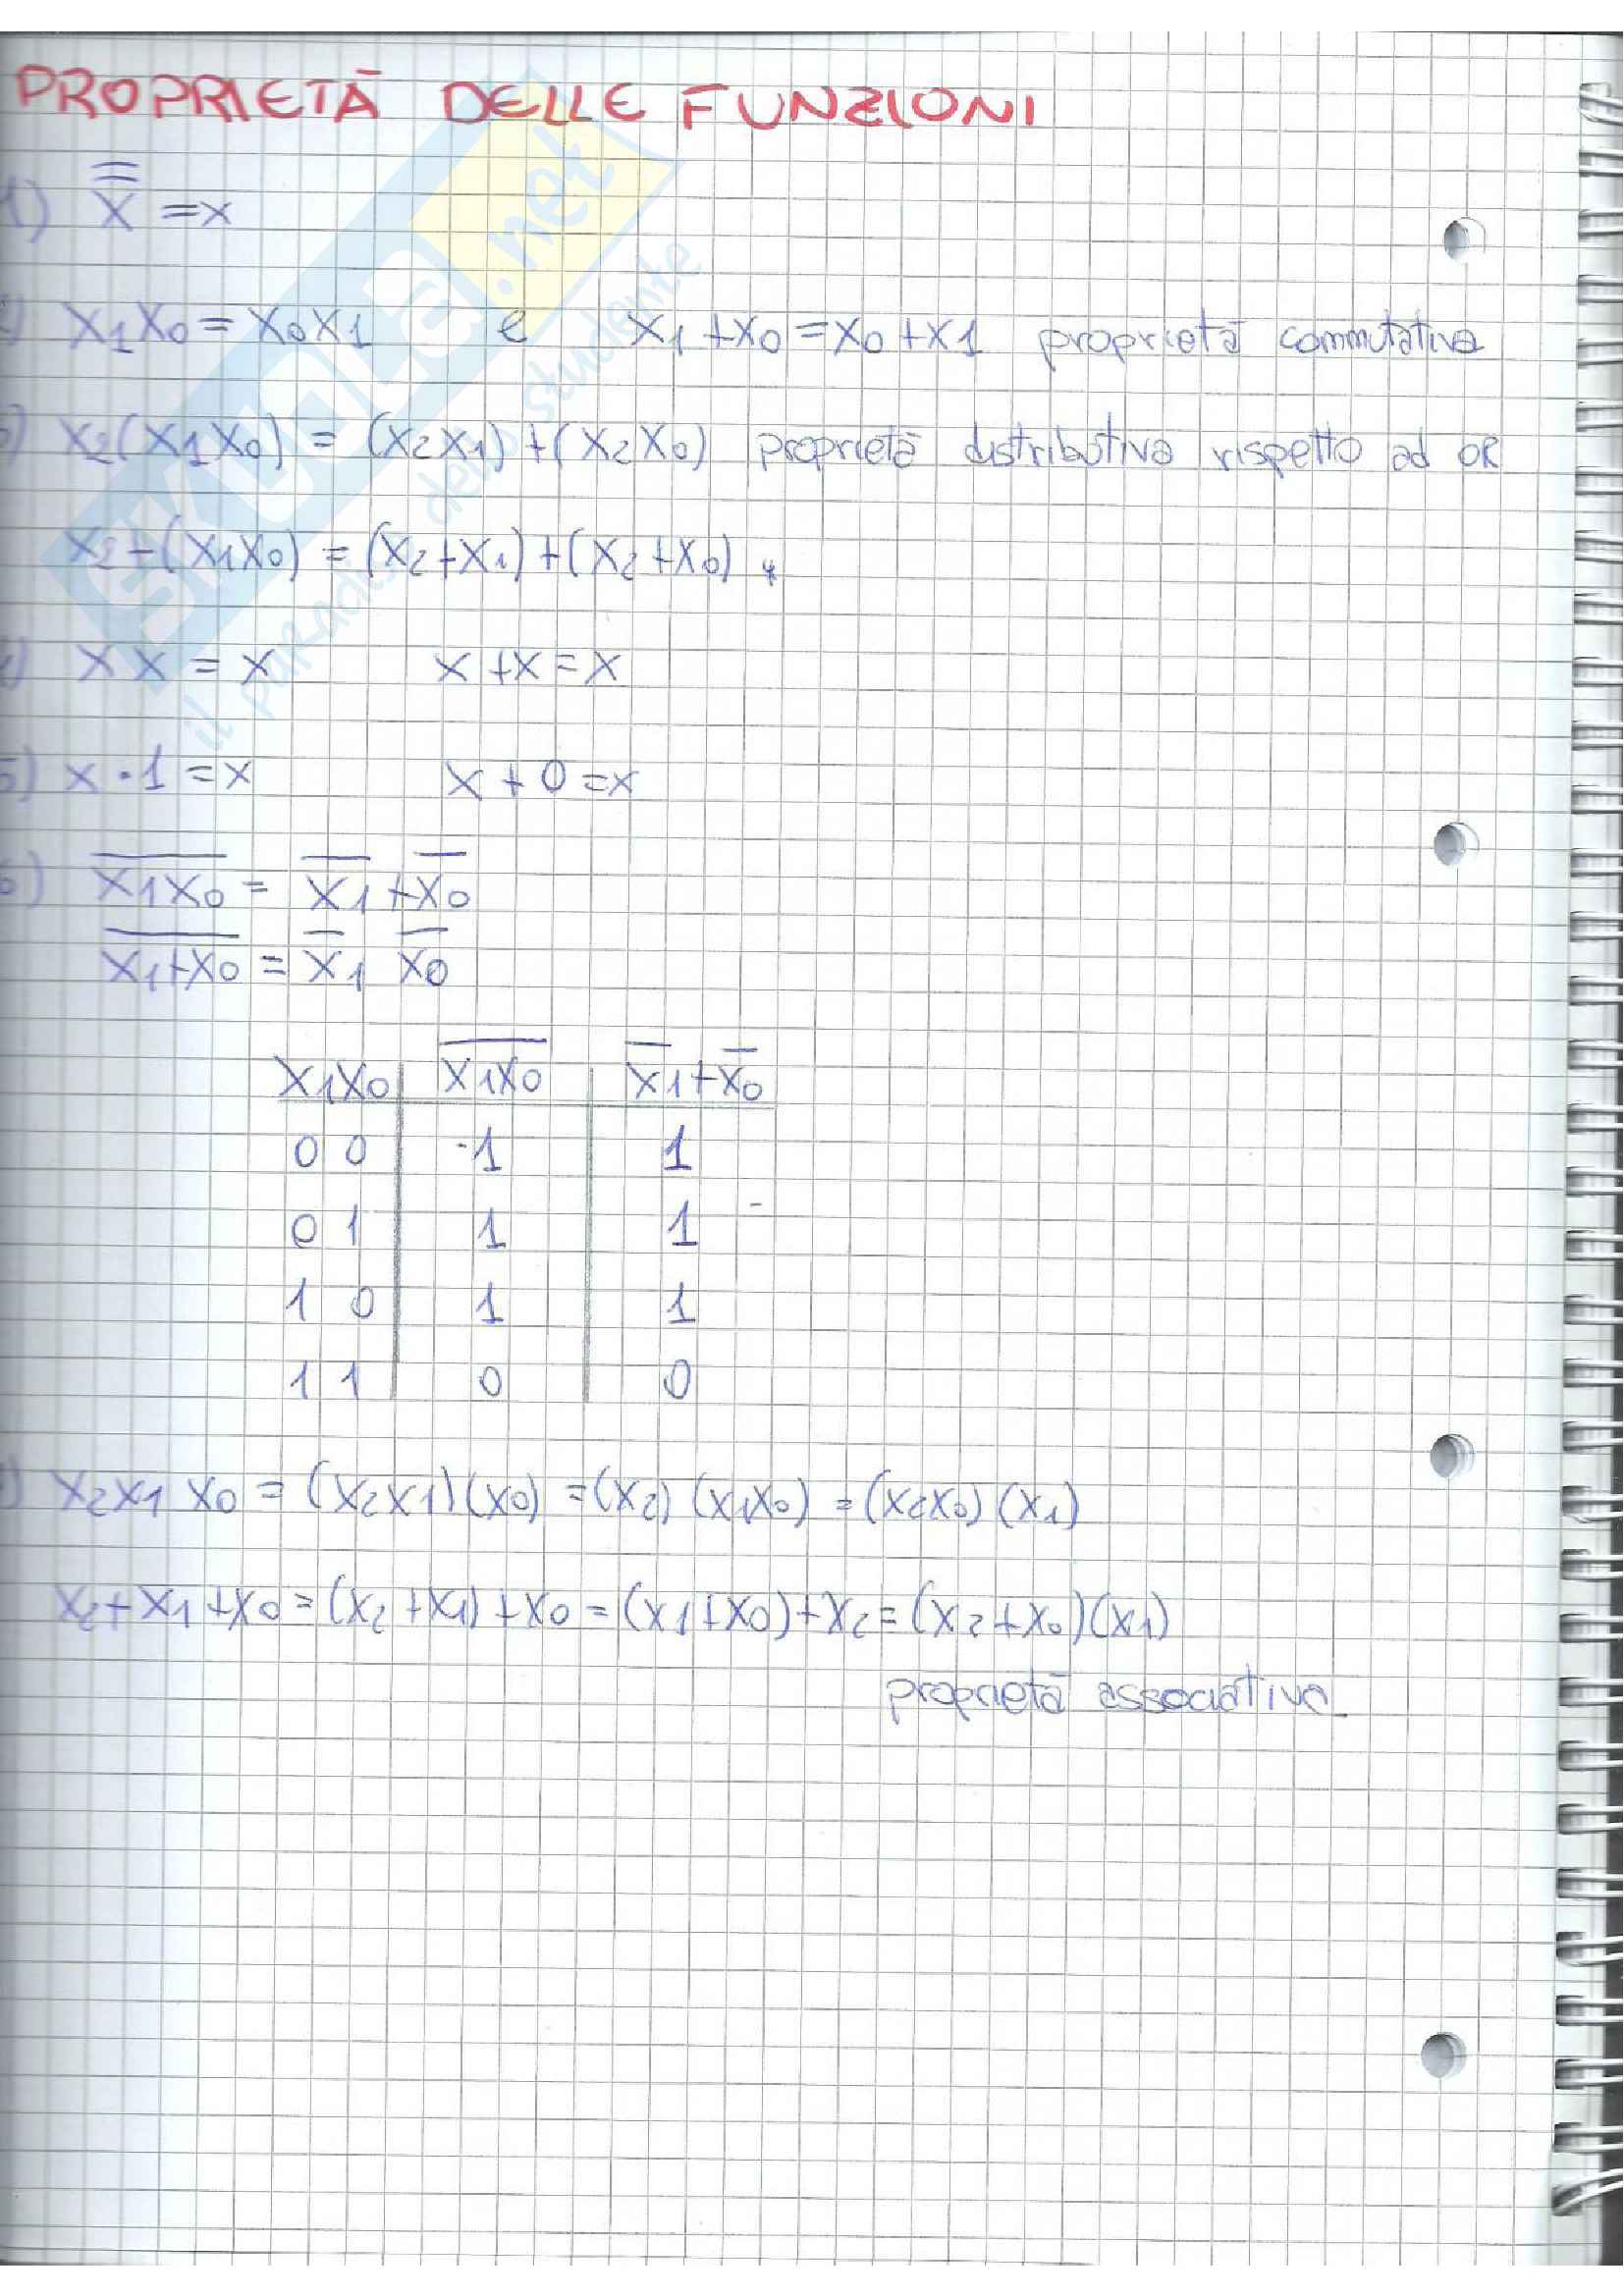 PROPRIETÀ DELLE FUNZIONI
1) x̿ = x
x₁x₀ = x₀x₁ e x₁+x₀ = x₀+x₁ proprietà commutativa
x₂(x₁x₀) = (x₂x₁)+(x₂x₀) proprietà distributiva rispetto ad OR
x₂+(x₁x₀) = (x₂+x₁)+(x₂+x₀) *
xx = x x+x=x
5) x·1=x x+0=x
6) \overline{x₁x₀} = \overline{x₁}+\overline{x₀}
\overline{x₁+x₀} = \overline{x₁} \overline{x₀}
x₁x₀ | \overline{x₁x₀} | \overline{x₁}+\overline{x₀}
0 0 | 1 | 1
0 1 | 1 | 1
1 0 | 1 | 1
1 1 | 0 | 0
x₂x₁x₀ = (x₂x₁)(x₀) = (x₂)(x₁x₀) = (x₂x₀)(x₁)
x₂+x₁+x₀ = (x₂+x₁)+x₀ = (x₁+x₀)+x₂ = (x₂+x₀)(x₁)
proprietà associativa
skuola.net
il paradiso dello studente